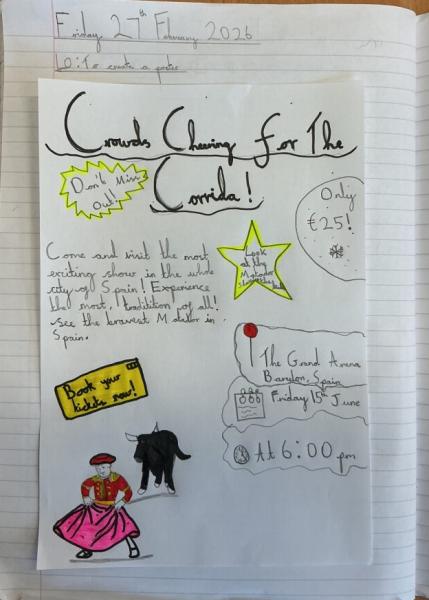 Friday 27th February 2026
LO: To create a poster
Crowds Cheering For The
Corrida!
Don't Miss
Out!
Only
€25!
Come and visit the most
exciting show in the whole
city of Spain! Experience
the most, tradition of all!
See the bravest Matador in
Spain.
Look
at the
Matador
The Grand Arena
Spain
Friday 15th June
At 6:00 pm
Book your
tickets now!